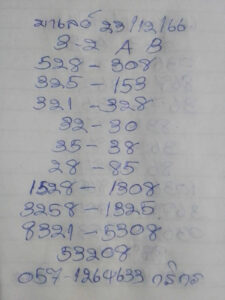 มาเลย์ 23/12/66
3-2 A B
528 - 308
325 - 153
321 - 328
32 - 30
35 - 38
28 - 85
1528 - 1308
3258 - 1325
8321 - 5308
53208
057-1264633